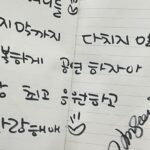 지막까지
다치지 말
복하게 공연 하자아
최고 응원하고
사랑해애